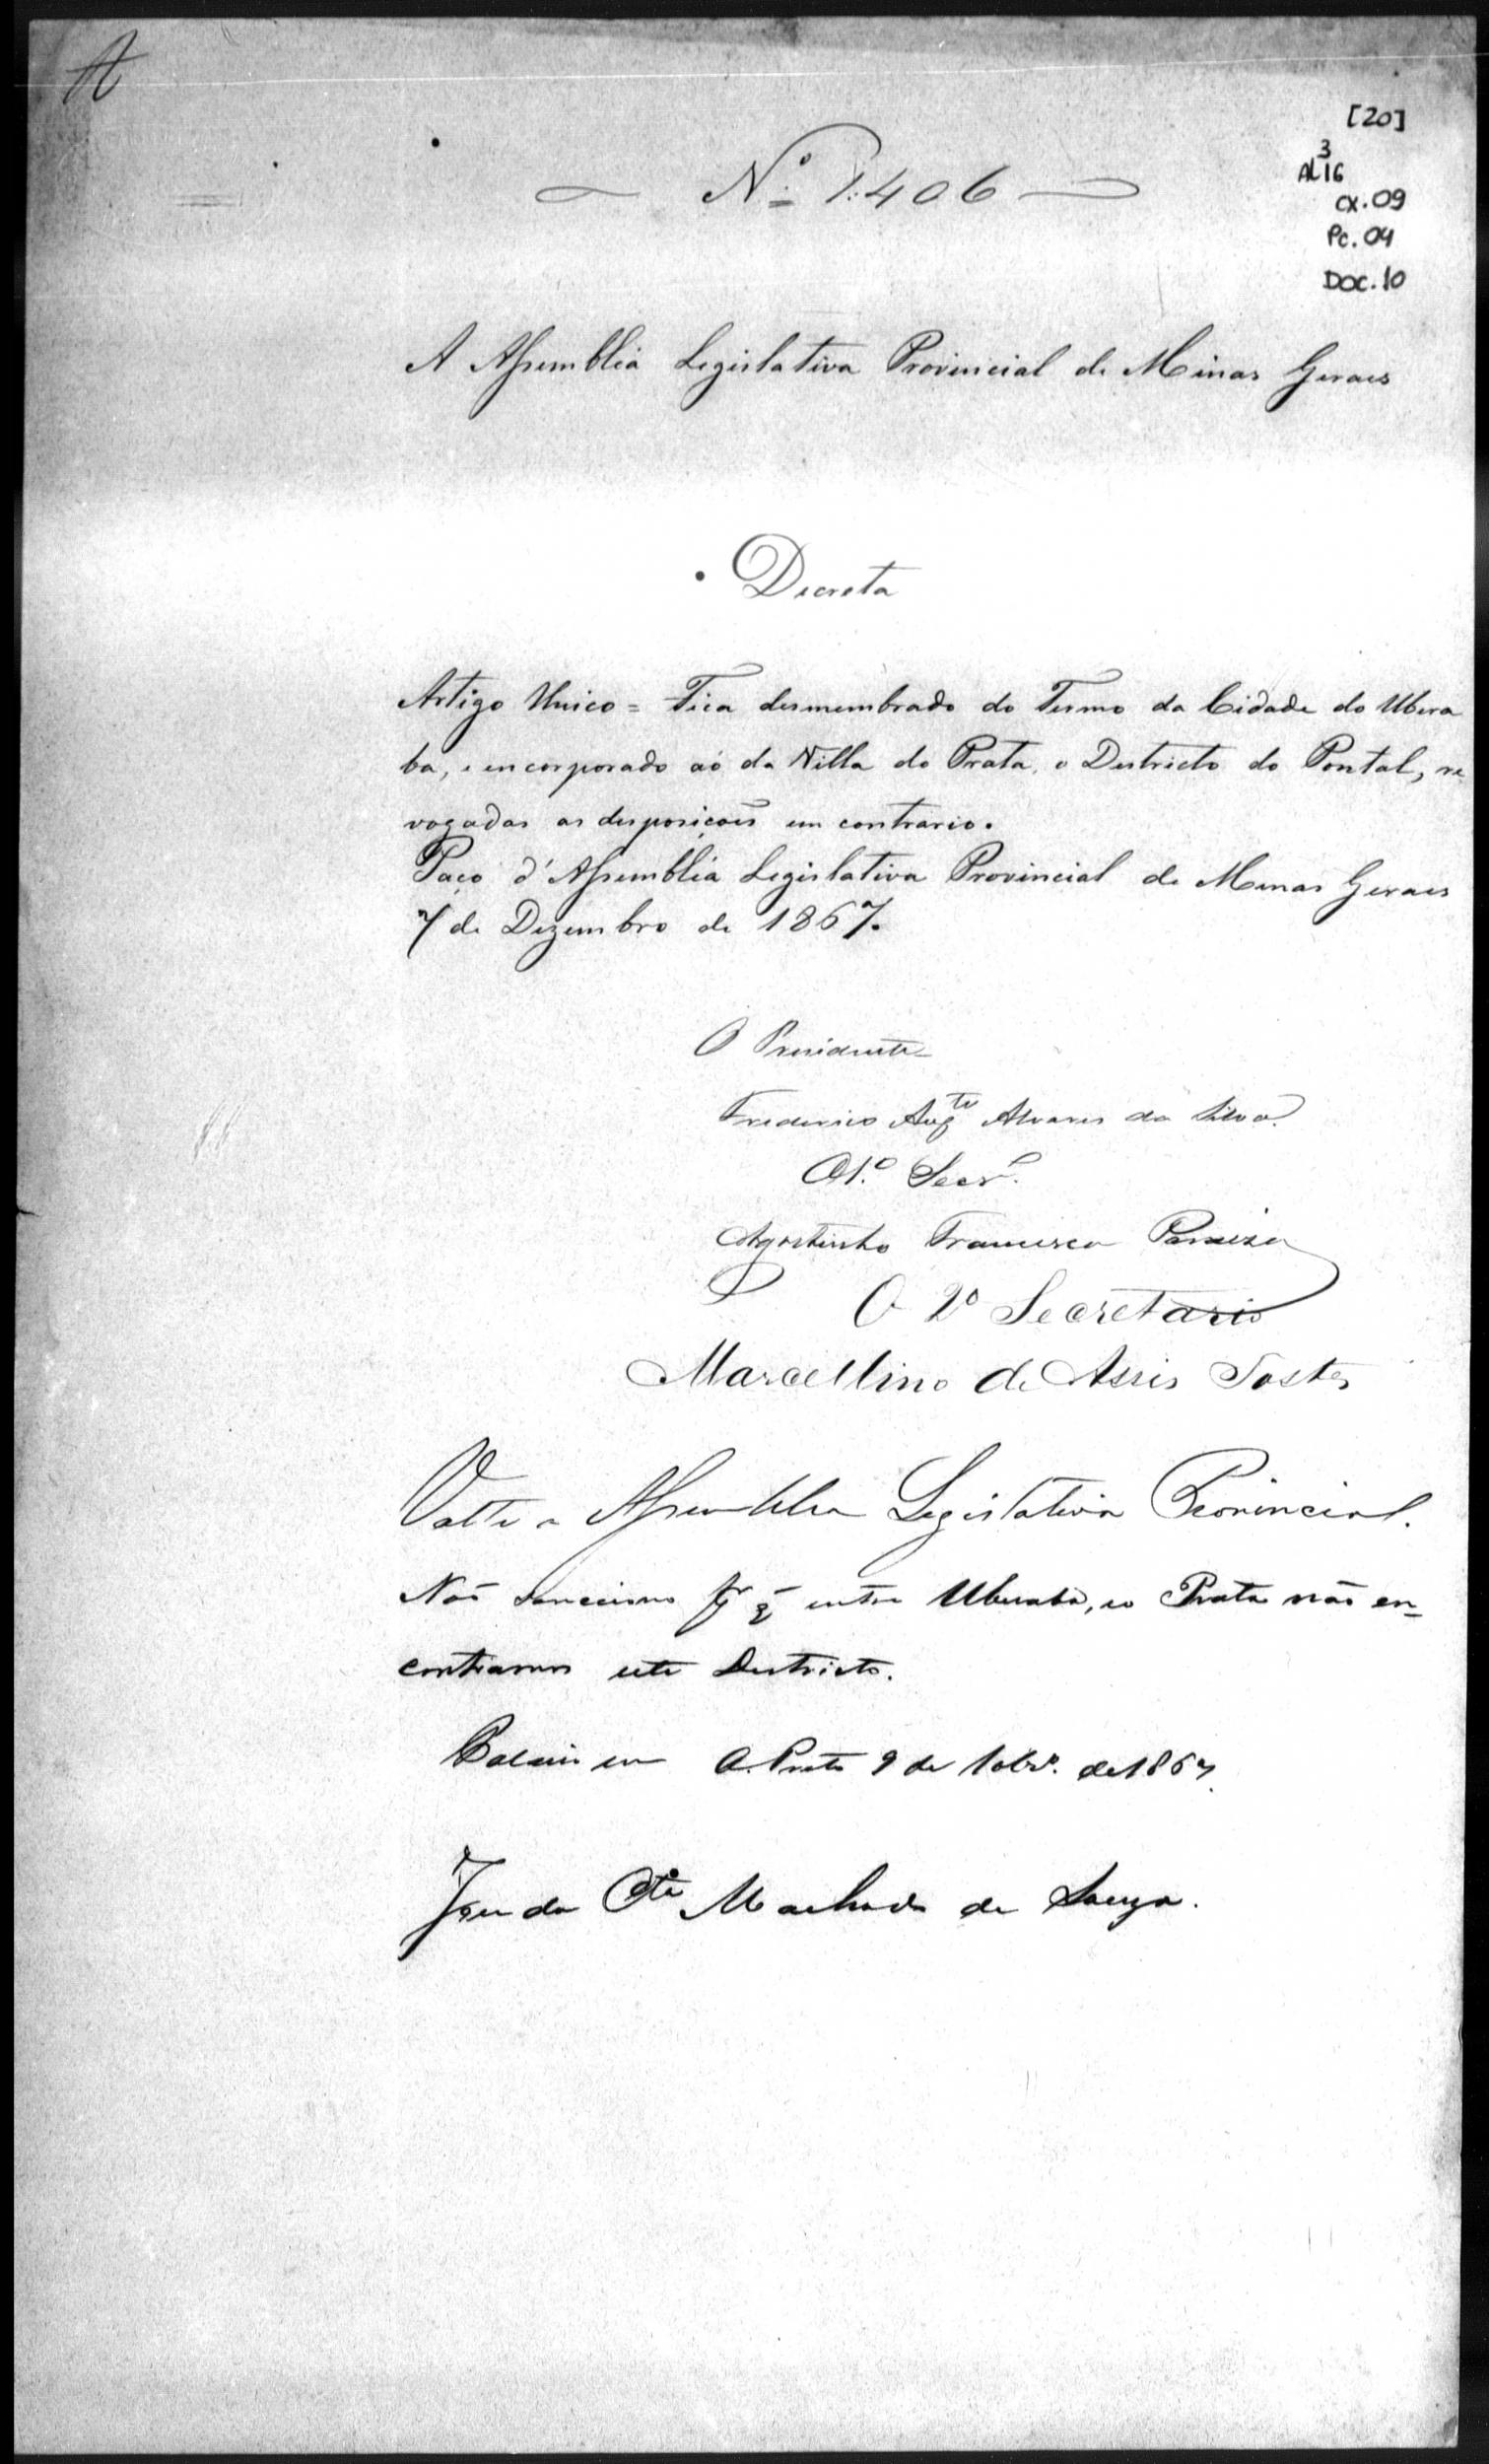 A
[20]
3
AL16
cx.09
Pc.04
Doc.10
Nº 1:406
A Assemblea Legislativa Provincial de Minas Geraes
Decreta
Artigo Unico = Fica desmembrado do Termo da Cidade do Ubera
ba, e encorporado aó da Villa do Prata, o Destricto do Pontal, re
vogadas as desposiçoẽs em contrario.
Paço d'Assemblea Legislativa Provincial de Minas Geraes
7 de Dezembro de 1867.
O Presidente
Frederico Augto Alvares da Silva.
O 1.º Secrº.
Agostinho Francisco
O 2º Secretario
Marcellino de Assis Tostes
Volte a Assemblea Legislativa Provincial.
Não sancciono pr q̃ entre Uberaba, e o Prata não en-
contramos este Destricto.
Palacio em O. Preto 9 de 10brº. de 1867.
da Cta Machado de Souza.